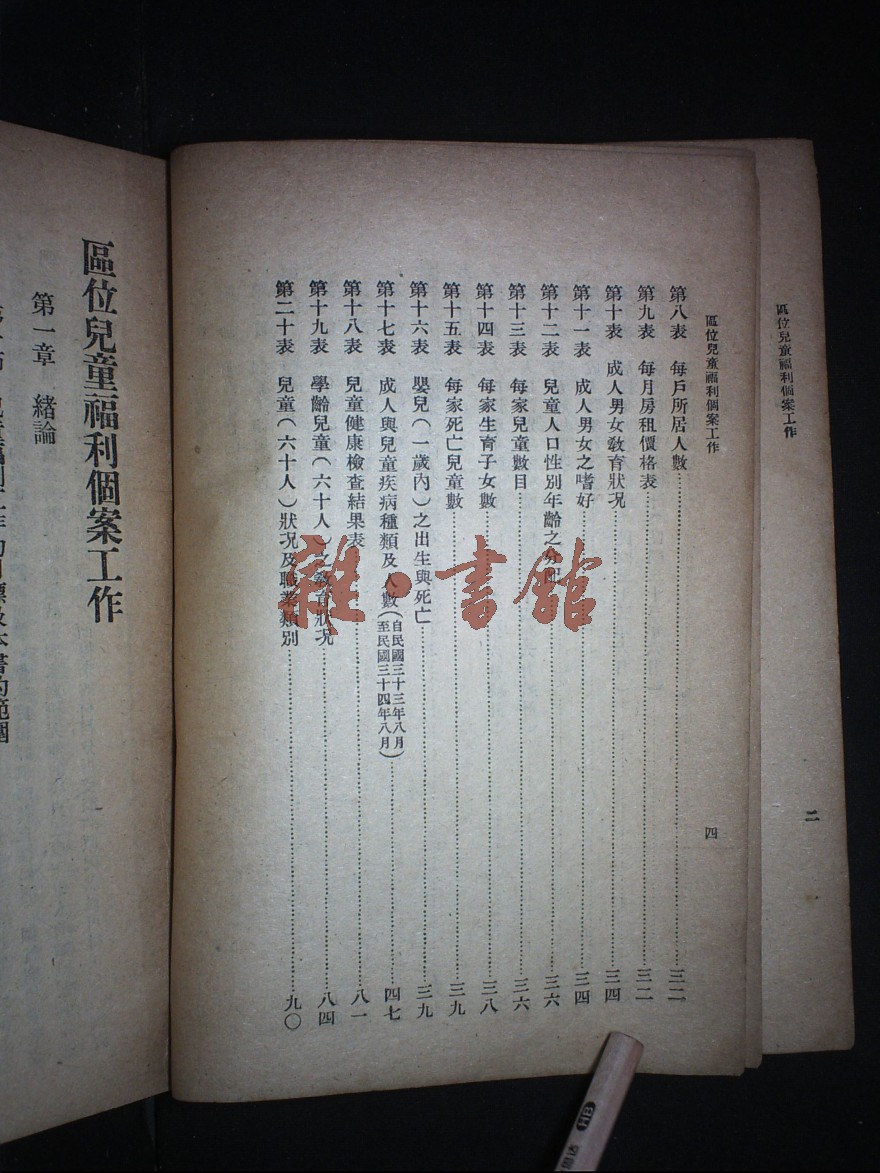 區位兒童福利個案工作
二
區位兒童福利個案工作
四
第八表 每戶所居人數……三二
第九表 每月房租價格表……三二
第十表 成人男女敎育狀况……三四
第十一表 成人男女之嗜好……三四
第十二表 兒童人口性別年齡之分配……三六
第十三表 每家兒童數目……三六
第十四表 每家生育子女數……三八
第十五表 每家死亡兒童數……三九
第十六表 嬰兒(一歲內)之出生與死亡……三九
第十七表 成人與兒童疾病種類及人數(自民國三十三年八月至民國三十四年八月)……四七
第十八表 兒童健康檢查結果表……八一
第十九表 學齡兒童(六十人)之敎育狀况……八四
第二十表 兒童(六十人)狀况及職業類別……九〇
區位兒童福利個案工作
第一章 緒論
雜·書館
HB